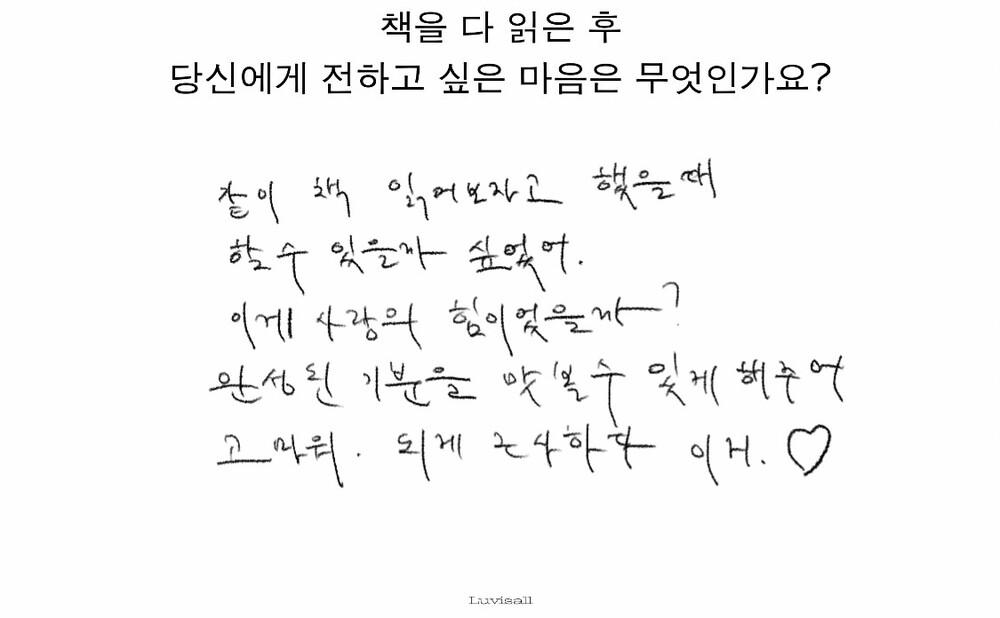 책을 다 읽은 후
당신에게 전하고 싶은 마음은 무엇인가요?
같이 책 읽어보자고 했을때
할수 있을까 싶었어.
이게 사랑의 힘이었을까?
완성된 기분을 맛볼수 있게 해주어
고마워. 되게 근사하다 이거. ♡
Luvisall